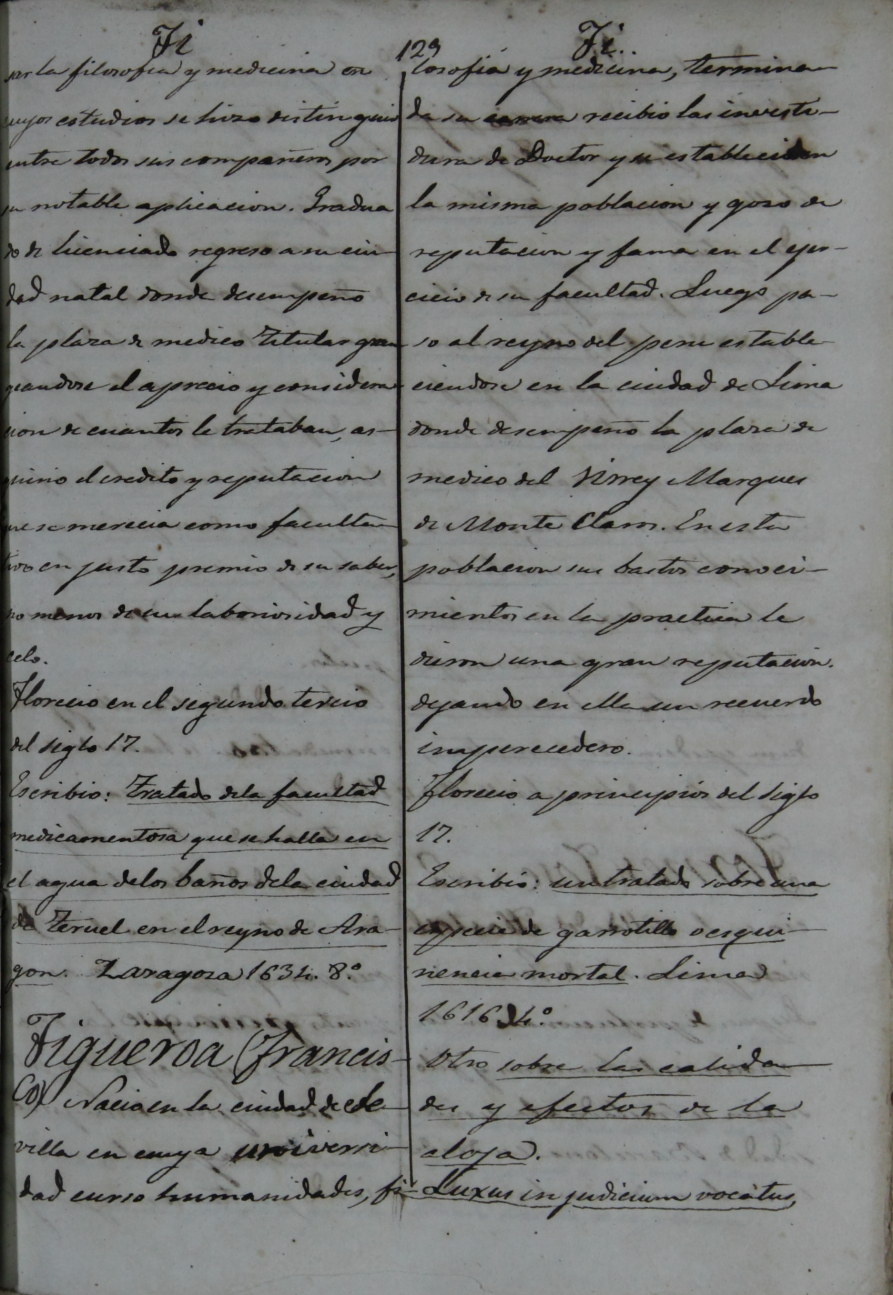 Fi
129
Fi
sar la filosofia y medicina en
cuyos estudios se hizo distinguir
entre todos sus compañeros por
su notable aplicacion. Gradua
do de licenciado regreso a su ciu-
dad natal donde desempeño
la plaza de medico titular gran
geandose el aprecio y considera-
cion de cuantos le trataban, ad-
quirio el credito y reputacion
que se merecia como faculta-
tivo en justo premio de su saber,
no menos de su laboriosidad y
celo.
Florecio en el segundo tercio
del siglo 17.
Escribio: Tratado dela facultad
medicamentosa que se halla en
el agua delos baños dela ciudad
de Teruel en el reyno de Ara-
gon. Zaragoza 1634. 8.º
Figueroa (Francis-
co) Nacio en la ciudad de Se-
villa en cuya universi-
dad curso humanidades, fi-
losofia y medicina, termina-
da su carrera recibio las investi-
dura de Doctor y se establecio en
la misma poblacion y gozo de
reputacion y fama en el ejer-
cicio de su facultad. Luego pa-
so al reyno del peru estable-
ciendose en la ciudad de Lima
donde desempeño la plaza de
medico del Virrey Marques
de Monte Claros. En esta
poblacion sus bastos conoci-
mientos en la practica le
dieron una gran reputacion.
dejando en ella un recuerdo
inaperecedero.
Florecio a principios del siglo
17.
Escribio: un tratado sobre una
especie de garrotillo o esqui-
nencia mortal. Lima
1616 4.º
Otro sobre las calida-
des y efectos de la
aloja.
Luxus in judicium vocatus,